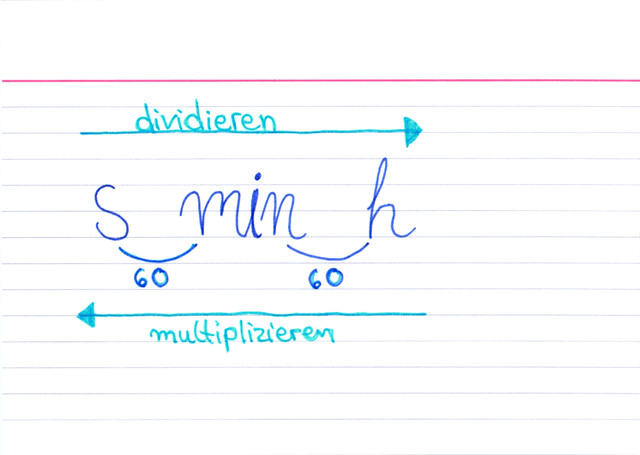 dividieren
s min h
60 60
multiplizieren